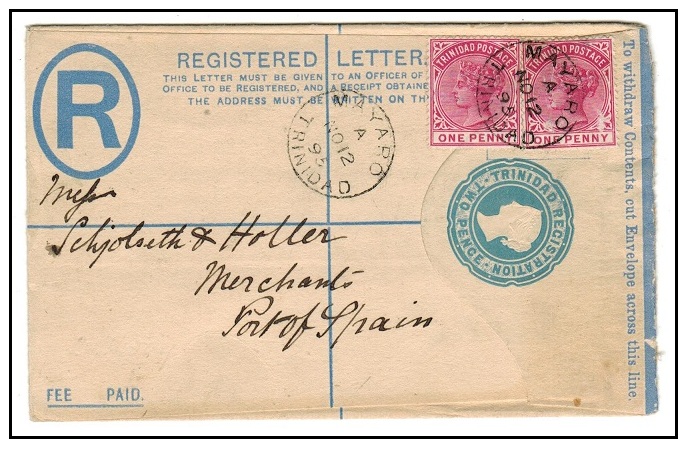 R
REGISTERED LETTER.
THIS LETTER MUST BE GIVEN TO AN OFFICER OF
OFFICE TO BE REGISTERED, AND A RECEIPT OBTAINE
THE ADDRESS MUST BE WRITTEN ON TH
TRINIDAD POSTAGE
ONE PENNY
TRINIDAD POSTAGE
ONE PENNY
MAYARO
A
NO 12
95
TRINIDAD
MAYARO
A
NO 12
95
TRINIDAD
TRINIDAD REGISTRATION
TWO PENCE
Mess
Schjolseth & Holler
Merchants
Port of Spain
FEE PAID.
To withdraw Contents, cut Envelope across this line.